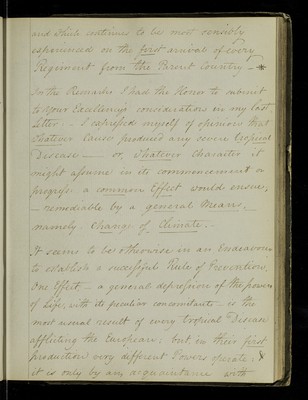 and which continues to be most sensibly
experienced on the first arrival of every
Regiment from the Parent Country —*
In the Remarks I had the Honor to submit
to your Excellency's considerations in my last
letter — I expressed myself of opinion that
Whatever Cause produced any severe tropical
Disease — or, Whatever character it
might assume in its commencement or
progress a common Effect would ensue,
— remediable by a general Means,
namely Change of Climate. —
It seems to be otherwise in an Endeavour
to establish a successful Rule of Prevention.
One Effect — a general depression of the powers
of Life, with its peculiar concomitants — is the
most usual result of every tropical Disease
afflicting the European; but in their first
production very different Powers operate;
it is only by an acquaintance with